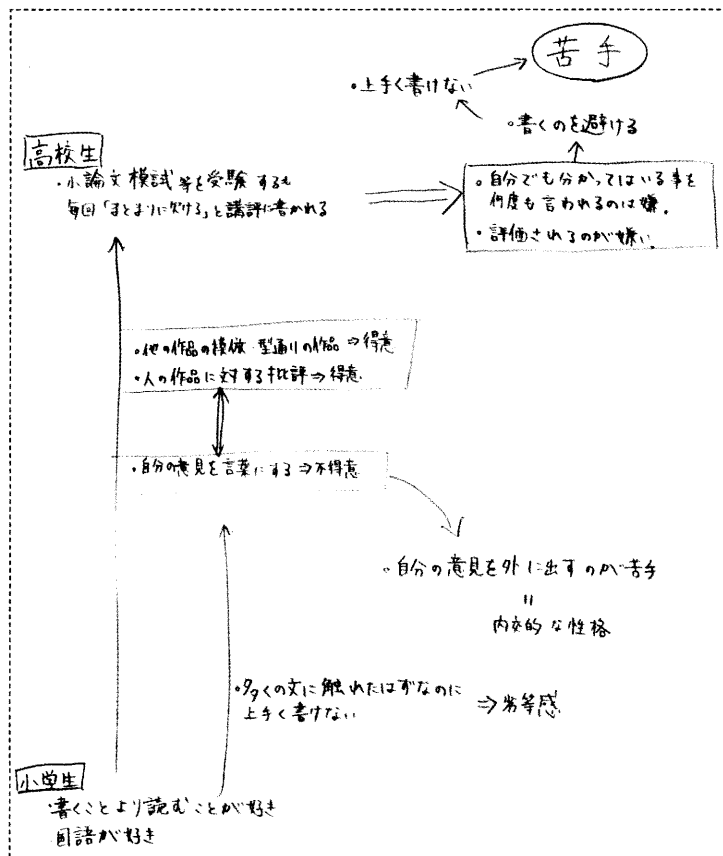 苦手
・上手く書けない
・書くのを避ける
高校生
・小論文模試等を受験するも
毎回「まとまりに欠ける」と講評に書かれる
・自分でも分かってはいる事を
何度も言われるのは嫌。
・評価されるのが嫌い。
・他の作品の模倣・型通りの作品⇒得意
・人の作品に対する批評⇒得意
・自分の意見を言葉にする⇒不得意
・自分の意見を外に出すのが苦手
=
内交的な性格
・多くの文に触れたはずなのに
上手く書けない
⇒劣等感
小学生
・書くことより読むことが好き
国語が好き